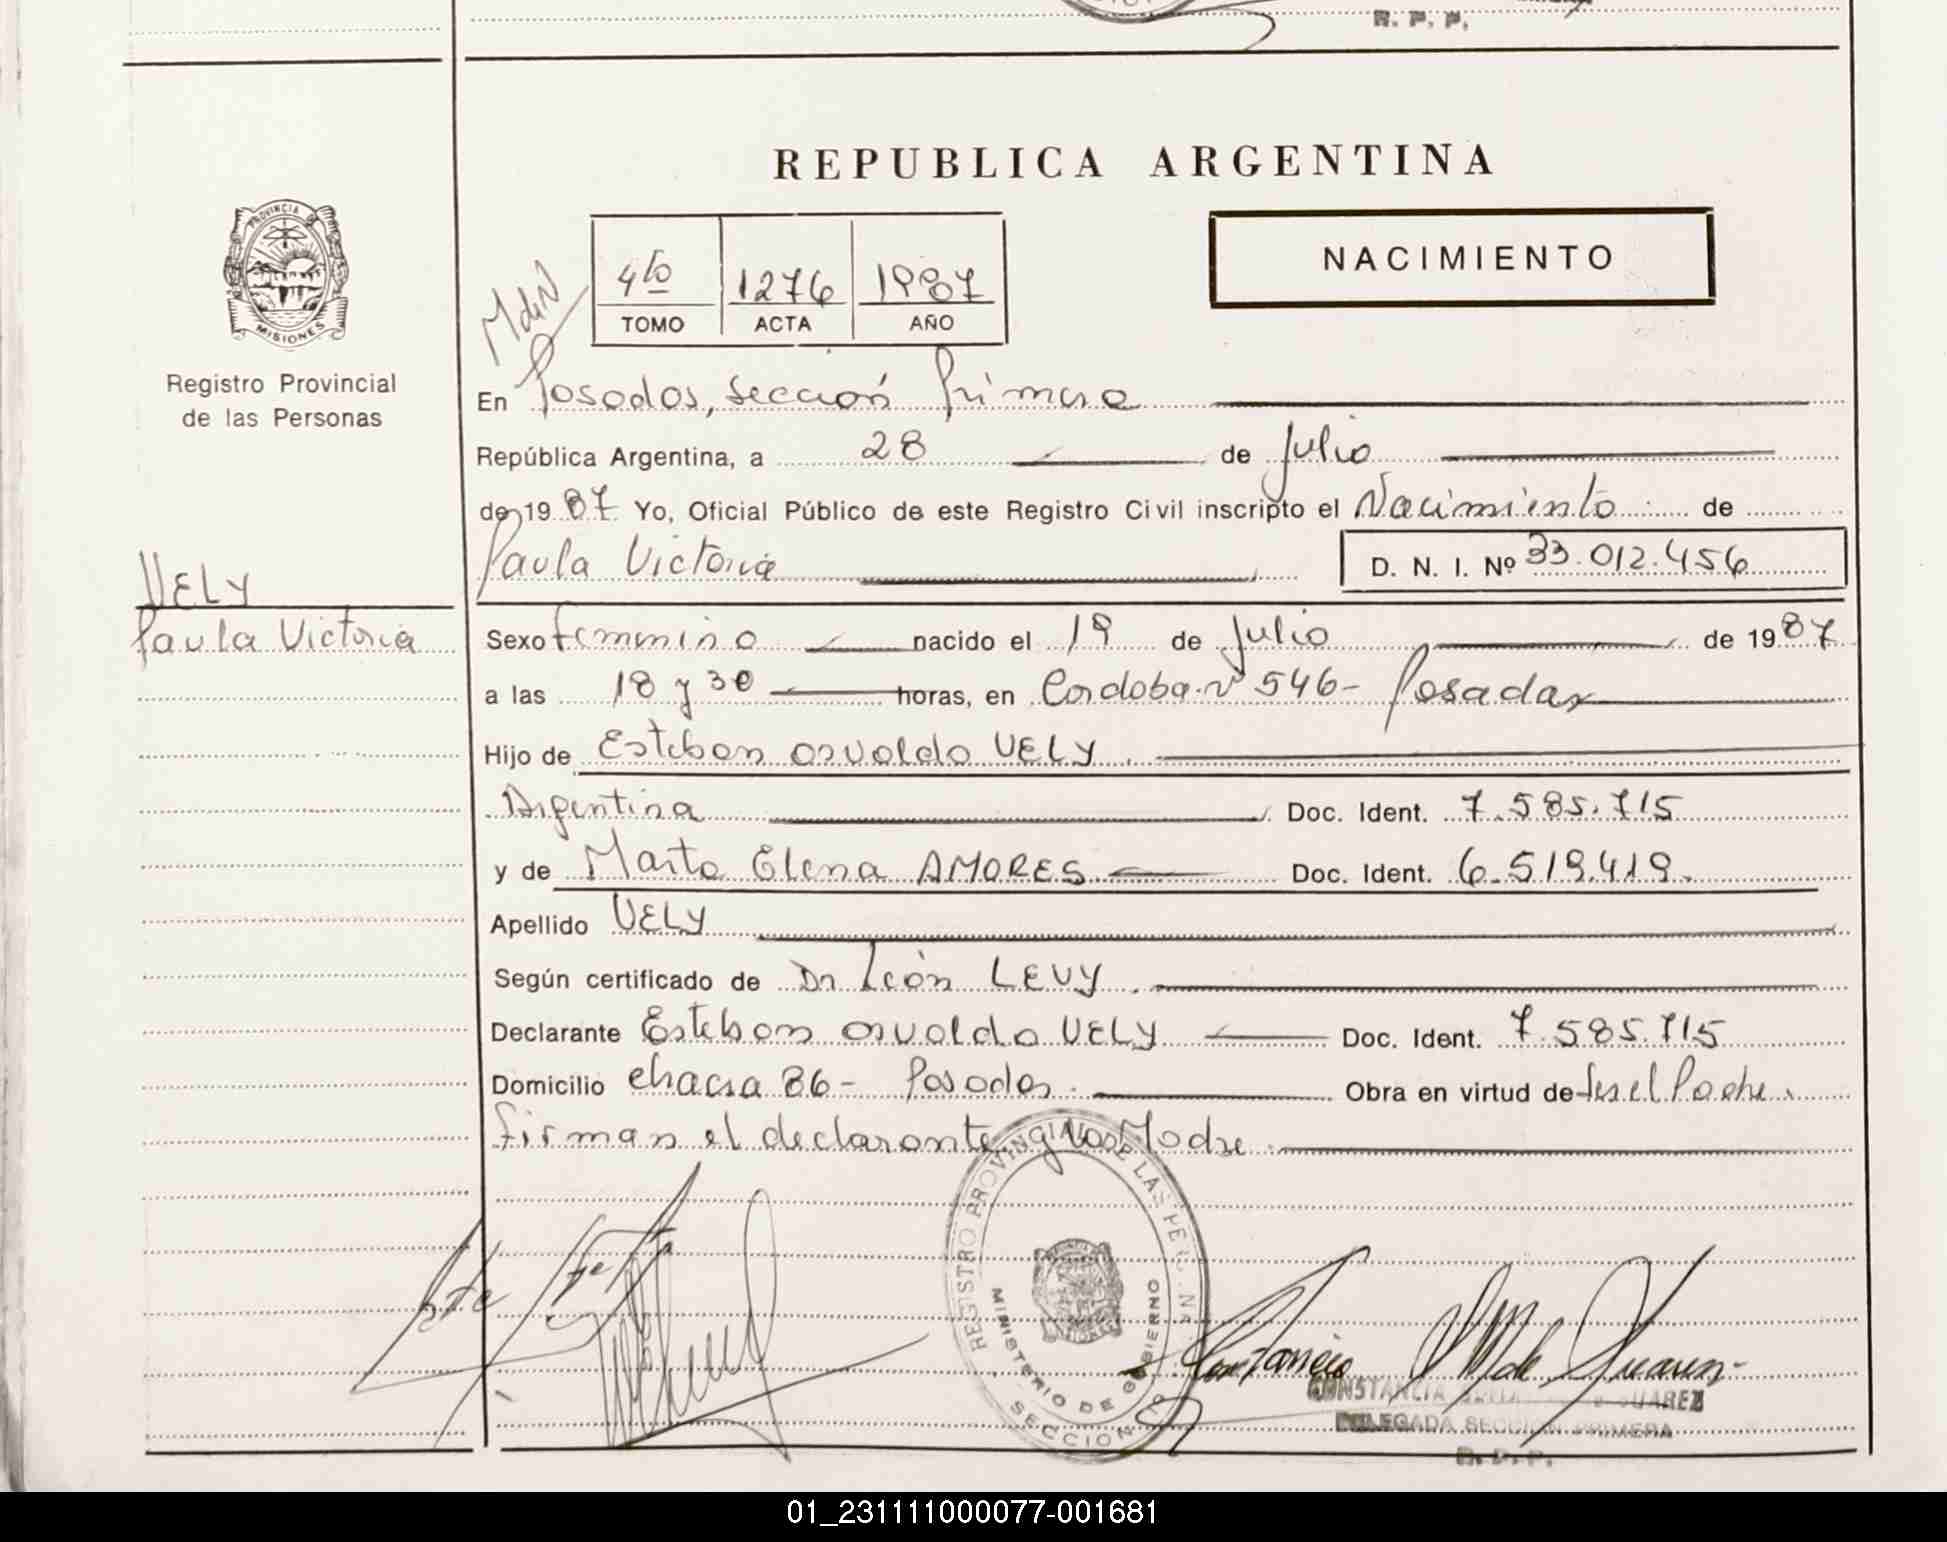 R. P. P.
REPUBLICA ARGENTINA
PROVINCIA DE
MISIONES
Registro Provincial
de las Personas
4to 1276 1987
TOMO ACTA AÑO
NACIMIENTO
En Posadas, Sección Primera
República Argentina, a 28 de Julio
de 1987 Yo, Oficial Público de este Registro Civil inscripto el Nacimiento de
Paula Victoria D. N. I. Nº 33.012.456
VELY
Paula Victoria
Sexo femenino nacido el 19 de Julio de 1987
a las 18 y 30 horas, en Cordoba nº 546- Posadas
Hijo de Esteban Osvaldo VELY
Argentina Doc. Ident. 7.585.715
y de Marta Elena AMORES Doc. Ident. 6.519.419.
Apellido VELY
Según certificado de Dr León LEVY.
Declarante Esteban Osvaldo VELY Doc. Ident. 7.585.715
Domicilio chacra 86- Posadas. Obra en virtud de ser el Padre.
firman el declarante y la Madre.
REGISTRO PROVINCIAL DE LAS PERSONAS
MINISTERIO DE GOBIERNO
SECCION 1a
Constancia de Suarez
CONSTANCIA SUAREZ
DELEGADA SECCION PRIMERA
R. P. P.
01_231111000077-001681